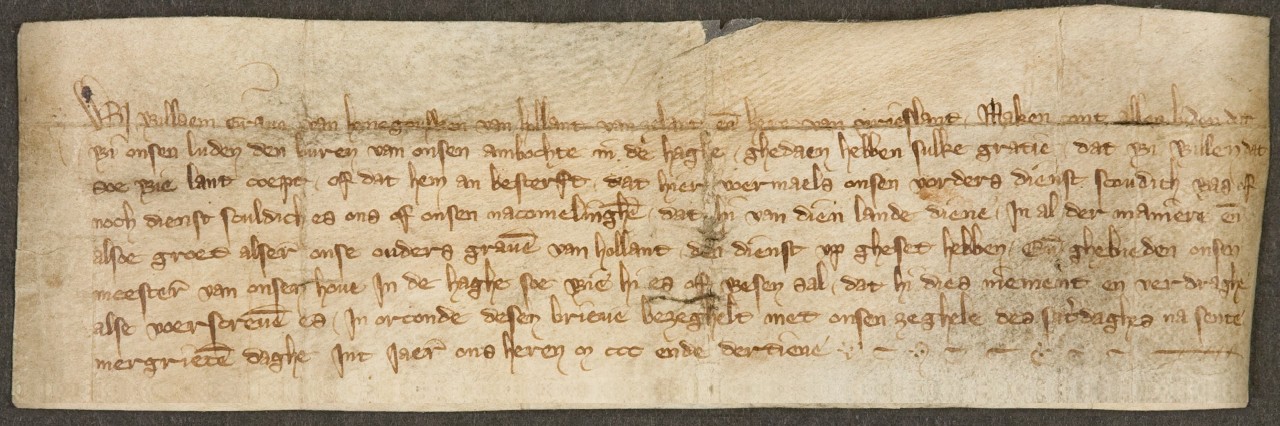 Wi Willaem Grave van henegouwen van hollant van zelant en̄ here van vrieslant. Maken cont allen luden dat
wi onsen luden den buren van onsen ambochte in de haghe, ghedaen hebben sulke gratie, dat wi willen dat
soe wie lant coept, of dat hem an besterft, dat hier voermaels onsen vorders dienst sculdich was of
noch dienst sculdich es ons of onsen nacomelinghē, dat hi van dien lande diene, In al der maniere en̄
alsoe groet alser onse ouders gravē van hollant, den dienst up gheset hebben, En̄ ghebieden onsen
meester van onsen hout In de haghe soe wie hi es of wesen sal, dat hi dies niement en verdraghe
alse voerscrevē es, In orconde desen brieve bezeghelt met onsen zeghele des satʼdaghes na sente
mergrietē daghe Int Jaer ons heren m ccc ende dertiene